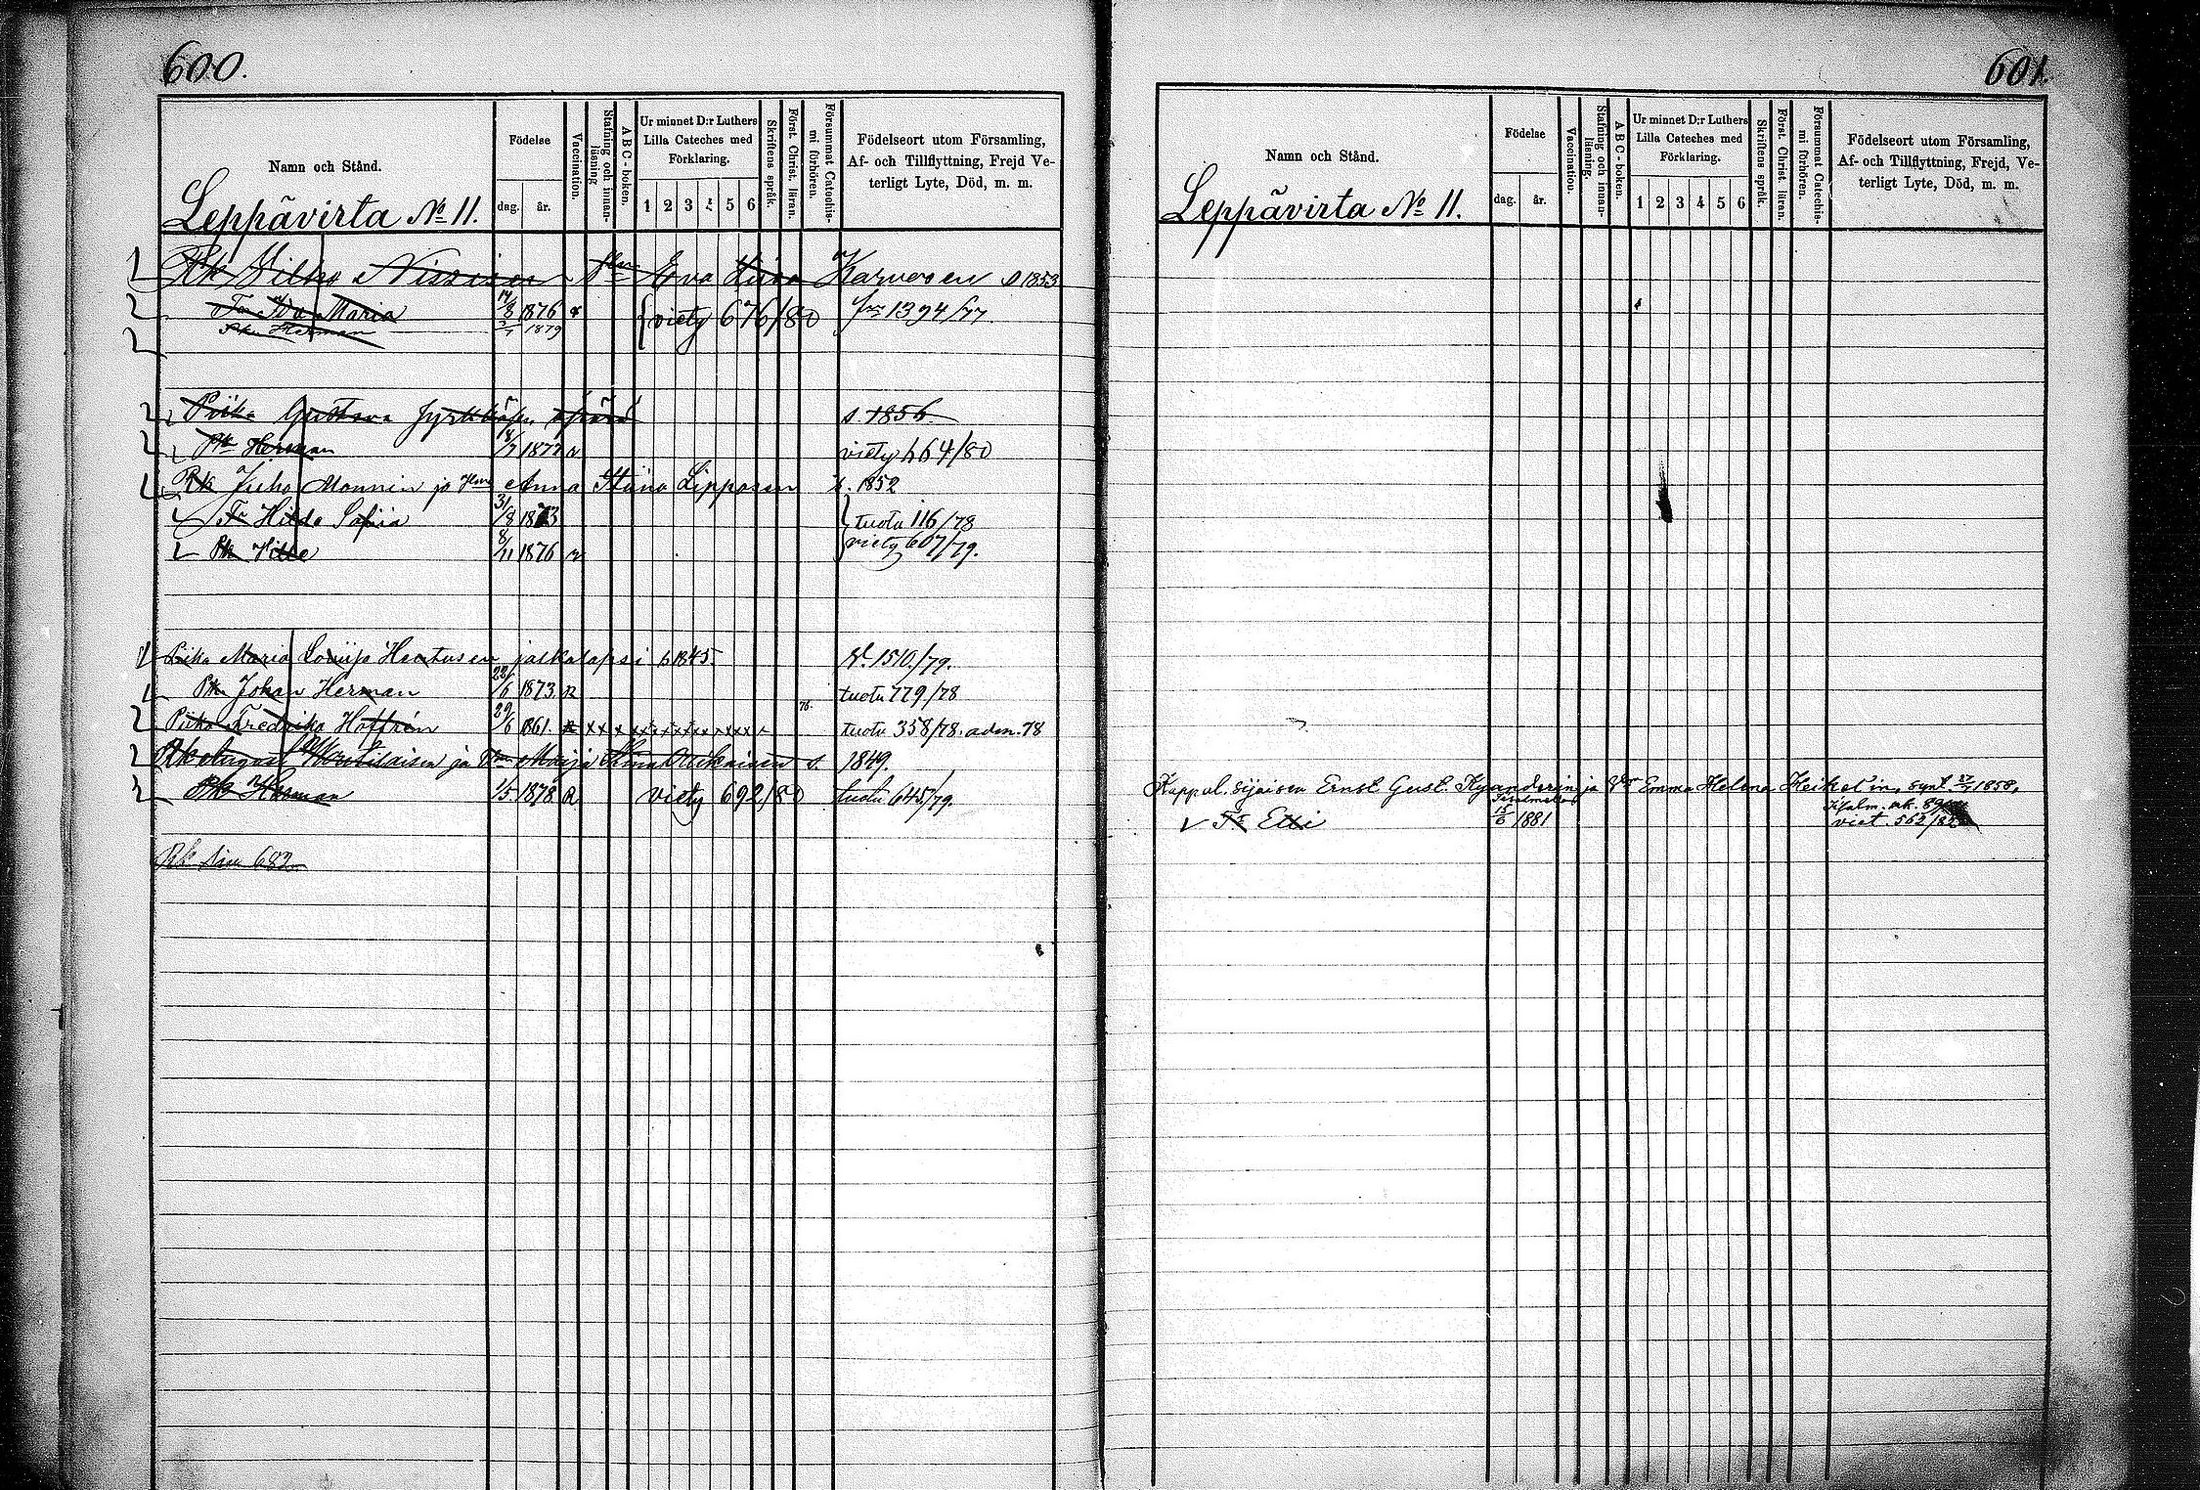 600.
Namn och Stånd.
Födelse
dag. år.
Vaccination.
Stafning och innan-läsning
ABC-boken.
Ur minnet D:r Luthers
Lilla Cateches med
Förklaring.
1 2 3 4 5 6
Skriftens språk.
Först. Christ. läran.
Försummat Catechis-mi förhören.
Födelseort utom Församling,
Af- och Tillflyttning, Frejd Ve-
terligt Lyte, Död, m. m.
Leppävirta No 11.
Rk Wilho Nissisen Hm Eva Karvosen s 1853
Tr Ida Maria 14/3 1876 viety 676/80 1394/77
Pka Herman 1879
Piika Gustava s. 1856.
Pka Herman 18/7 1877 viety 664/80
Rk Juho Monnin ja Hm Anna Stiina Lipposen s. 1852
Tr Hilda Sofiia 31/8 1873 tuotu 116/78
Pk Ville 8/11 1876 viety 607/79.
Piika Maria Lovisa jalkalapsi s 1845. 1510/79.
Pka Johan Herman 22/6 1873 tuotu 779/78
76.
Piika Fredrika Hoffrén 29/6 1861. x x x x x x x x x x tuotu 358/78. adm. 78
Rk August ja Vm Maija s. 1849.
Pk Herman 1/5 1878 viety 692/80 tuotu 645/79.
Rk siv. 682.
601.
Namn och Stånd.
Födelse
dag. år.
Vaccination.
Stafning och innan-läsning.
ABC-boken.
Ur minnet D:r Luthers
Lilla Cateches med
Förklaring.
1 2 3 4 5 6
Skriftens språk.
Först. Christ. läran.
Försummat Catechis-mi förhören.
Födelseort utom Församling,
Af- och Tillflyttning, Frejd, Ve-
terligt Lyte, Död, m. m.
Leppävirta No 11.
Kappal. sijaisen Ernst Gust. Kyanderin ja Vm Emma Helena Heikelin, synt. 1858,
Tr Elli 15/6 1881 viet. 562/82